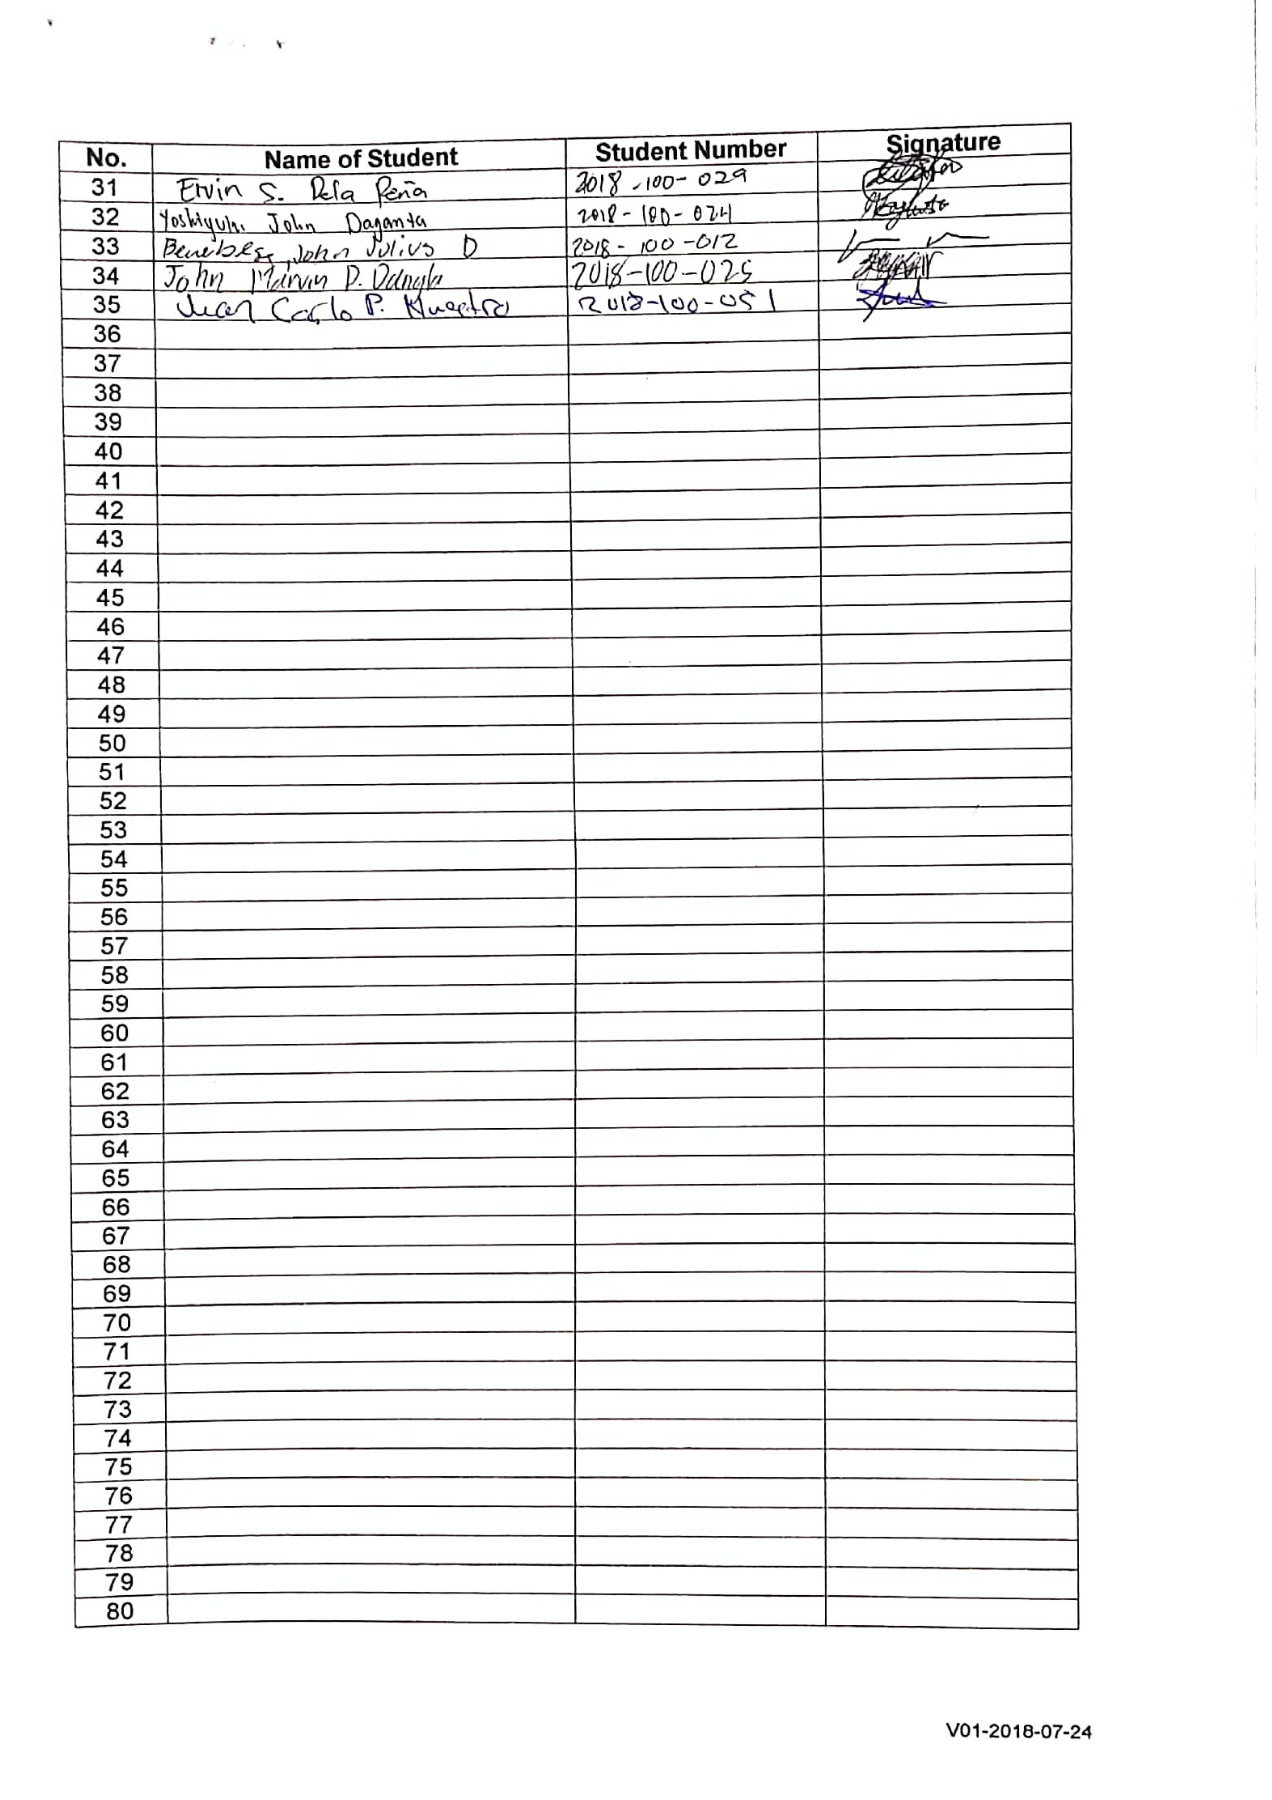 No. Name of Student Student Number Signature
31 Ervin S. Dela Peña 2018-100-029
32 Yoshiyuki John Daganta 2018-100-024
33 John Julius D 2018-100-012
34 John Marvin P. 2018-100-025
35 Juan Carlo P. 2018-100-051
36
37
38
39
40
41
42
43
44
45
46
47
48
49
50
51
52
53
54
55
56
57
58
59
60
61
62
63
64
65
66
67
68
69
70
71
72
73
74
75
76
77
78
79
80
V01-2018-07-24